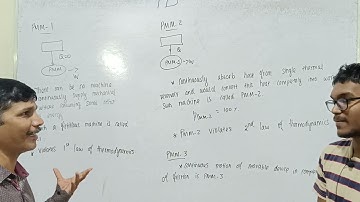 PMM-1
Q=0
PMM-1
W
There can be no machine
continuously supply mechanical
some other
energy
such a fictitious machine is called
* Violates 1st law of thermodynamics
PMM-2
Q
PMM-2
W
* continuously absorb heat from single thermal
reservoir and would convert this heat completely into work
such machine is called PMM-2.
η PMM-2 = 100 %
* PMM-2 violates 2nd law of thermodynamics
PMM-3
* continuous motion of movable device in
of friction is PMM-3